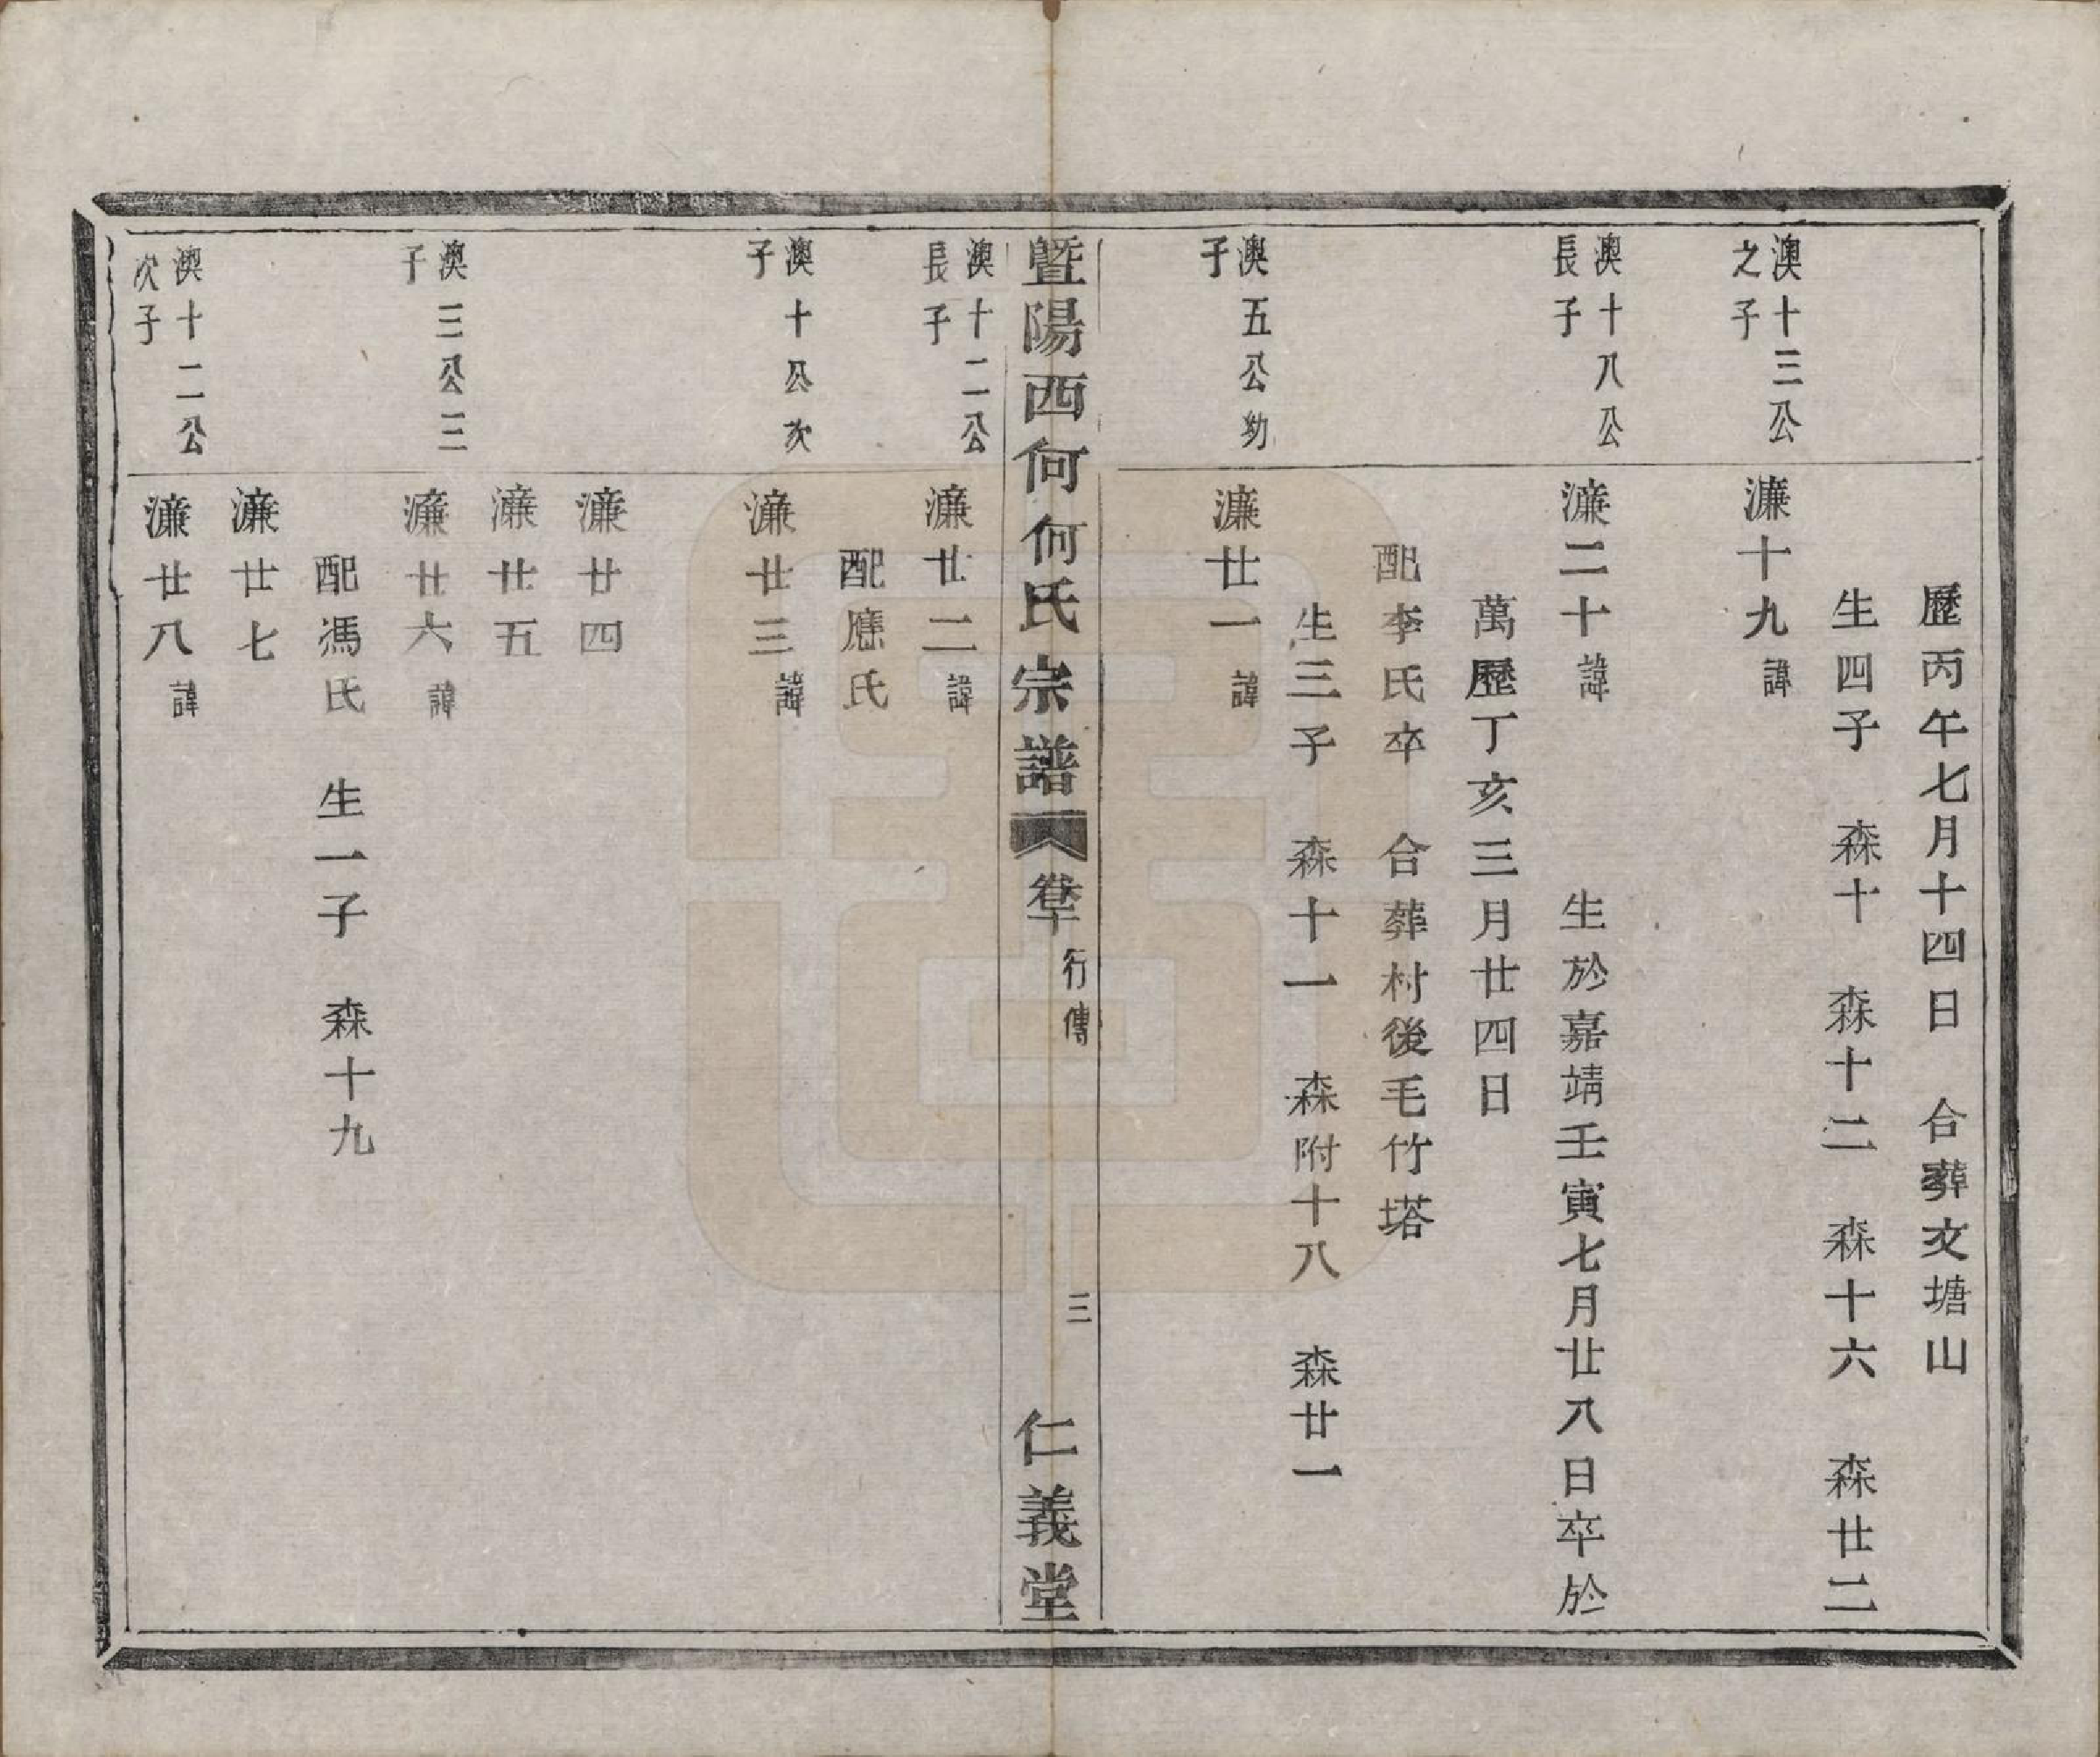 歷丙午七月十四日　合葬文塘山
生四子　森十　森十二　森十六　森廿二
澳十三公之子
濂十九諱
澳十八公長子
濂二十諱　生於嘉靖壬寅七月廿八日卒於
萬歷丁亥三月廿四日
配李氏卒　合葬村後毛竹塔
生三子　森十一　森附十八　森廿一
澳五公幼子
濂廿一諱
暨陽西何何氏宗譜　行傳　三　仁義堂
澳十二公長子
濂廿二諱
配應氏
澳十公次子
濂廿三諱
濂廿四
濂廿五
澳三公三子
濂廿六諱
配馮氏　生一子　森十九
濂廿七
澳十二公次子
濂廿八諱